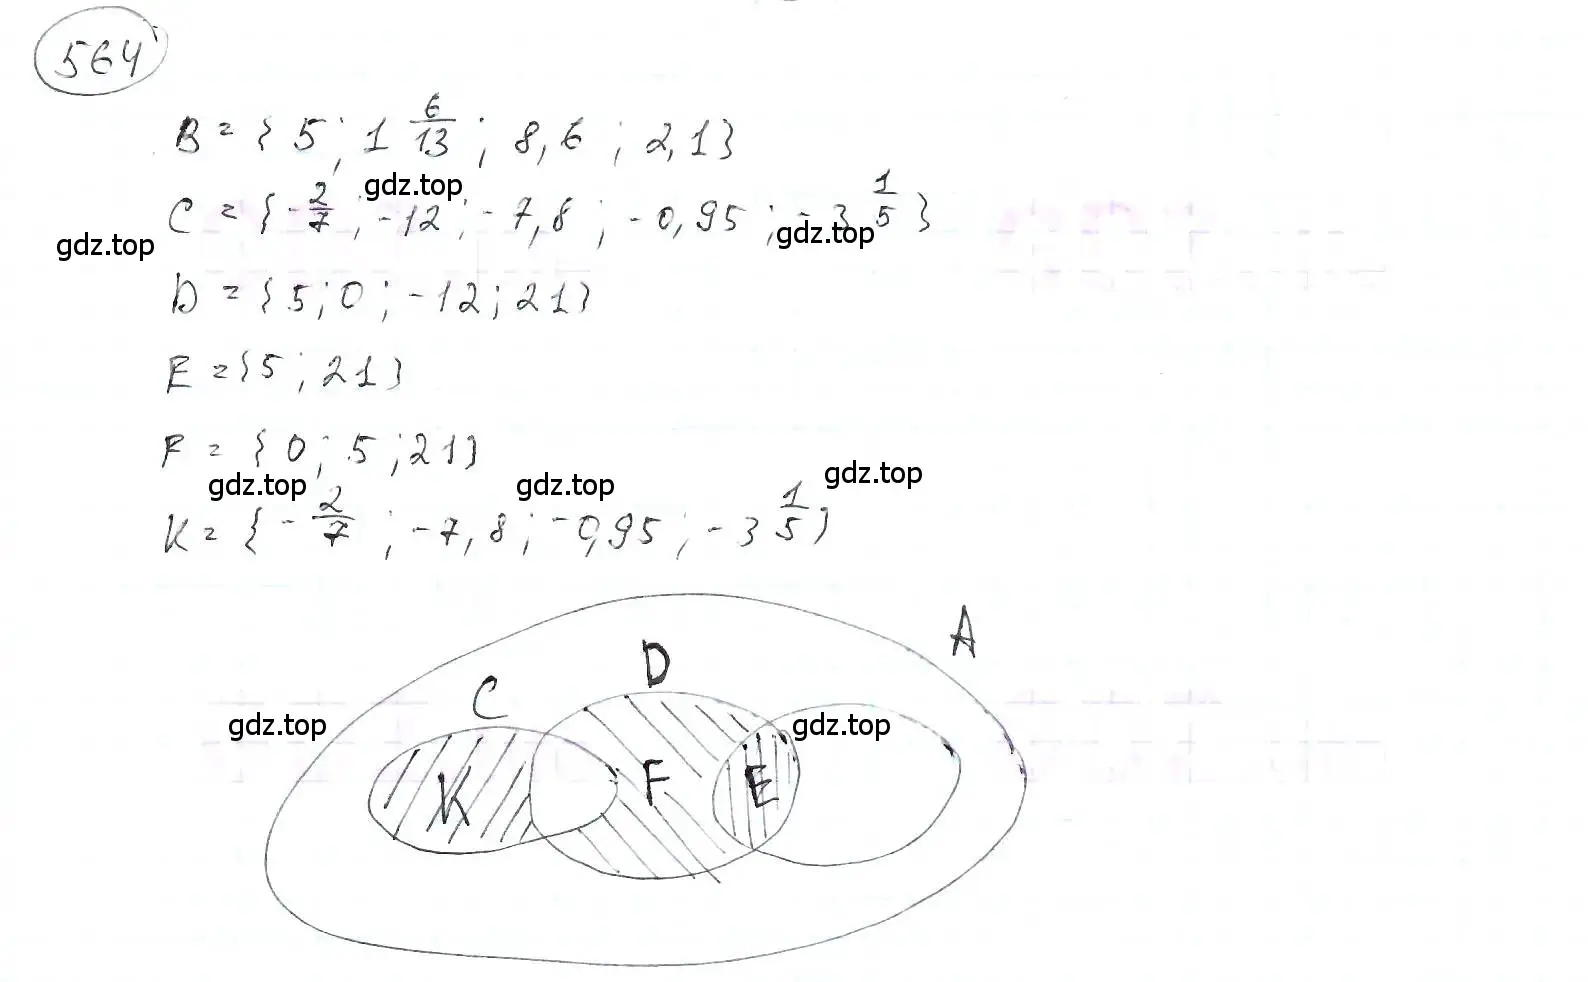 564
B = { 5 ; 1 6/13 ; 8,6 ; 2,1 }
gdz.top
C = { - 2/7 ; -12 ; -7,8 ; -0,95 ; -3 1/5 }
gdz.top
gdz.top
D = { 5 ; 0 ; -12 ; 21 }
E = { 5 ; 21 }
F = { 0 ; 5 ; 21 }
gdz.top gdz.top gdz.top
K = { - 2/7 ; -7,8 ; -0,95 ; -3 1/5 }
A
D
C
gdz.top gdz.top
K F E